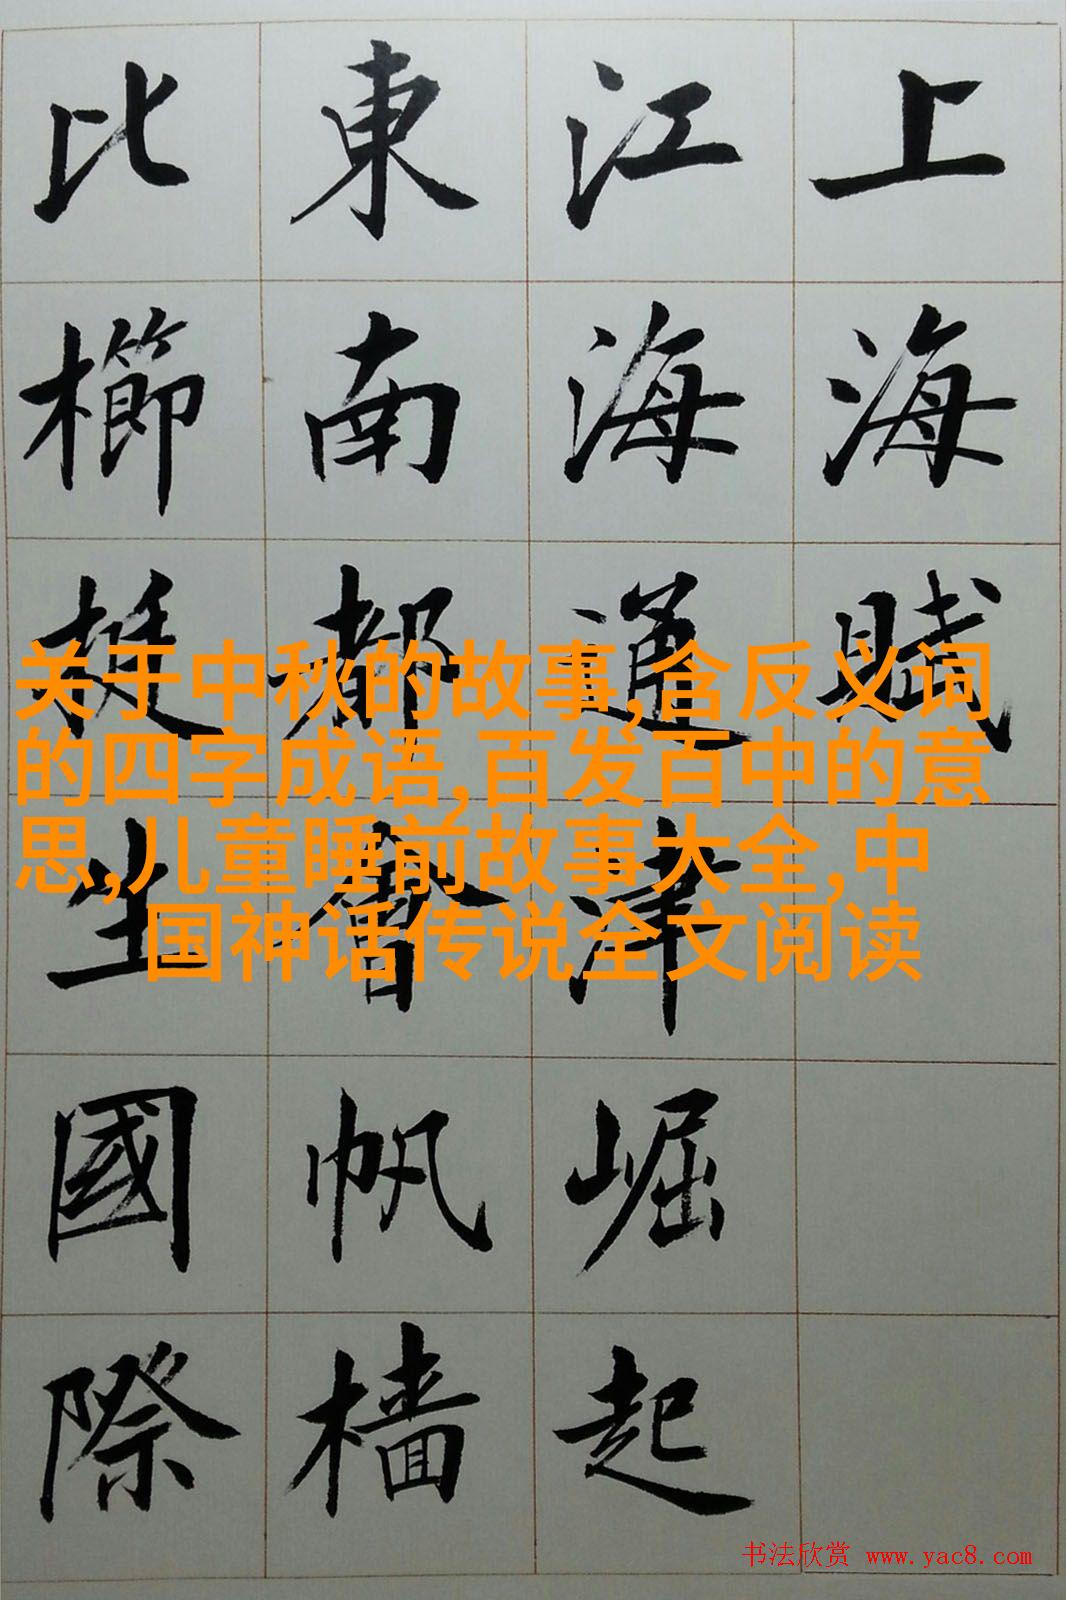 上海賦
江海通津崛起
東南都會帆檣
比櫛挺生國際
关于中秋的故事,含反义词
的四字成语,百发百中的意
思,儿童睡前故事大全,中
国神话传说全文阅读
书法欣赏 www.yac8.com